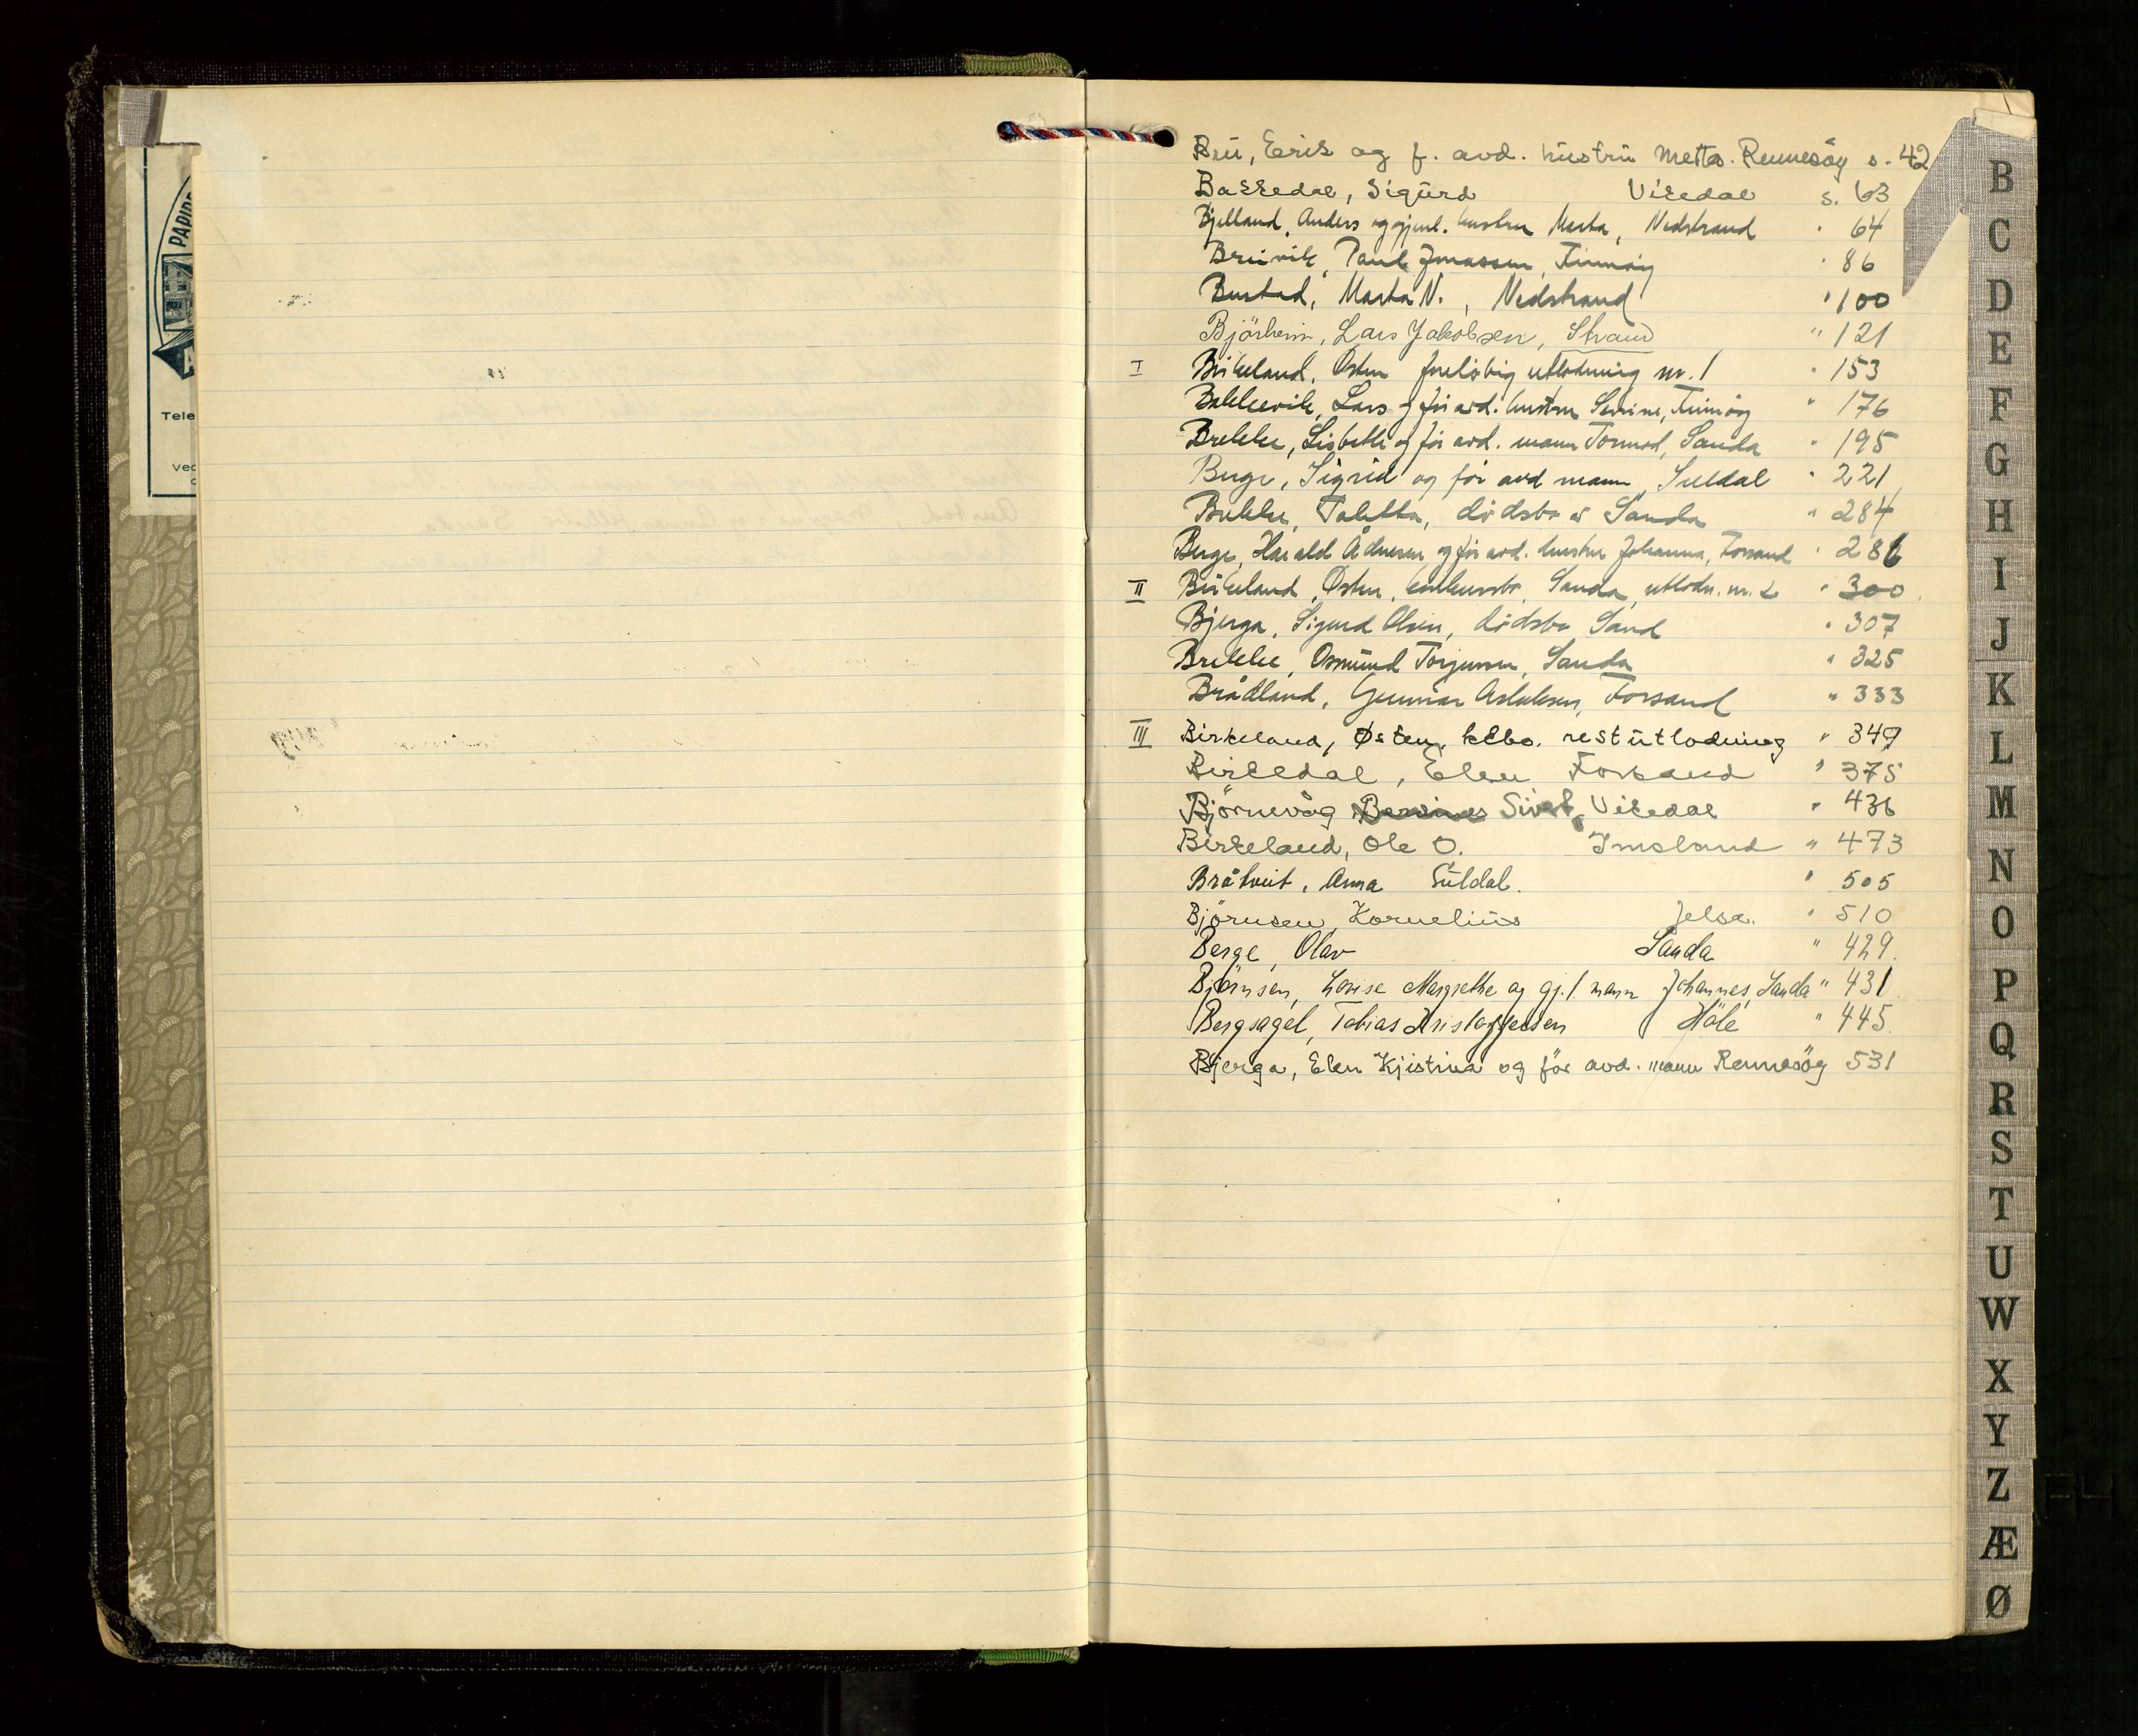 PAPIR
Tele
Ved
Bru, Eerik og f. avd. hustru Mette. Rennesöy s. 42
Bakkedal, Sigurd Vikedal s. 63
Bjelland, Anders og gjenl. hustru Marta, Nedstrand " 64
Breivik, Paul Jonassen, Finnöy " 86
Bustad, Marta N., Nedstrand " 100
Björheim, Lars Jakobsen, Strand " 121
I Birkeland, Østen foreløbig utlodning nr. 1 " 153
Bakkevik, Lars og før avd. hustru Serine, Finnöy " 176
Brekke, Lisbeth og før avd. mann Tormod, Sanda " 195
Berge, Sigrid og før avd mann, Suldal " 221
Brekke, Taletta, dödsbo av Sanda " 284
Berge, Harald Ådnesen og før avd. hustru Johanna, Forsand " 286
II Birkeland, Østen, konkursbo, Sanda, utlodn. nr. 2 " 300
Bjerga, Sigurd Olsen, dödsbo Sand " 307
Brekke, Osmund Torjussen, Sanda " 325
Brådland, Gunnar Aslaksen, Forsand " 333
III Birkeland, Østen, kkbo. restutlodning " 349
Birkedal, Elen Forsand " 375
Björnevåg Sivert, Vikedal " 436
Birkeland, Ole O. Imsland " 473
Bråtveit, Anna Suldal. " 505
Björnsen, Kornelius Jelsa. " 510
Berge, Olav Sanda " 429.
Bjørnsen, Lovise Margrethe og gj.l. mann Johannes, Sanda " 431
Bergsagel, Tobias Kristoffersen Høle " 445.
Bjerga, Elen Kjistina og för avd. mann Rennesöy 531
B
C
D
E
F
G
H
I
J
K
L
M
N
O
P
Q
R
S
T
U
W
X
Y
Z
Æ
Ø